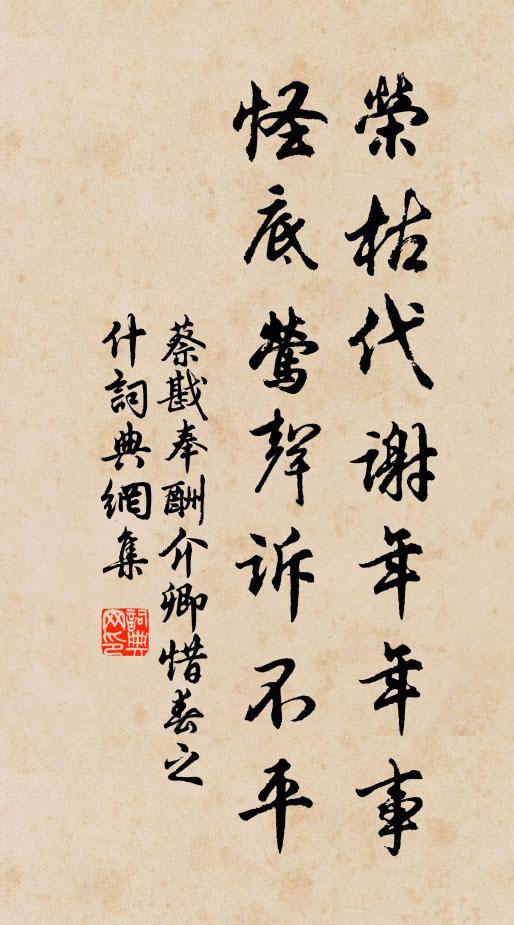 榮枯代謝年年事
怪底鶯聲訴不平
蔡戡奉酬介卿惜春之
什詞典網集
詞典
网印